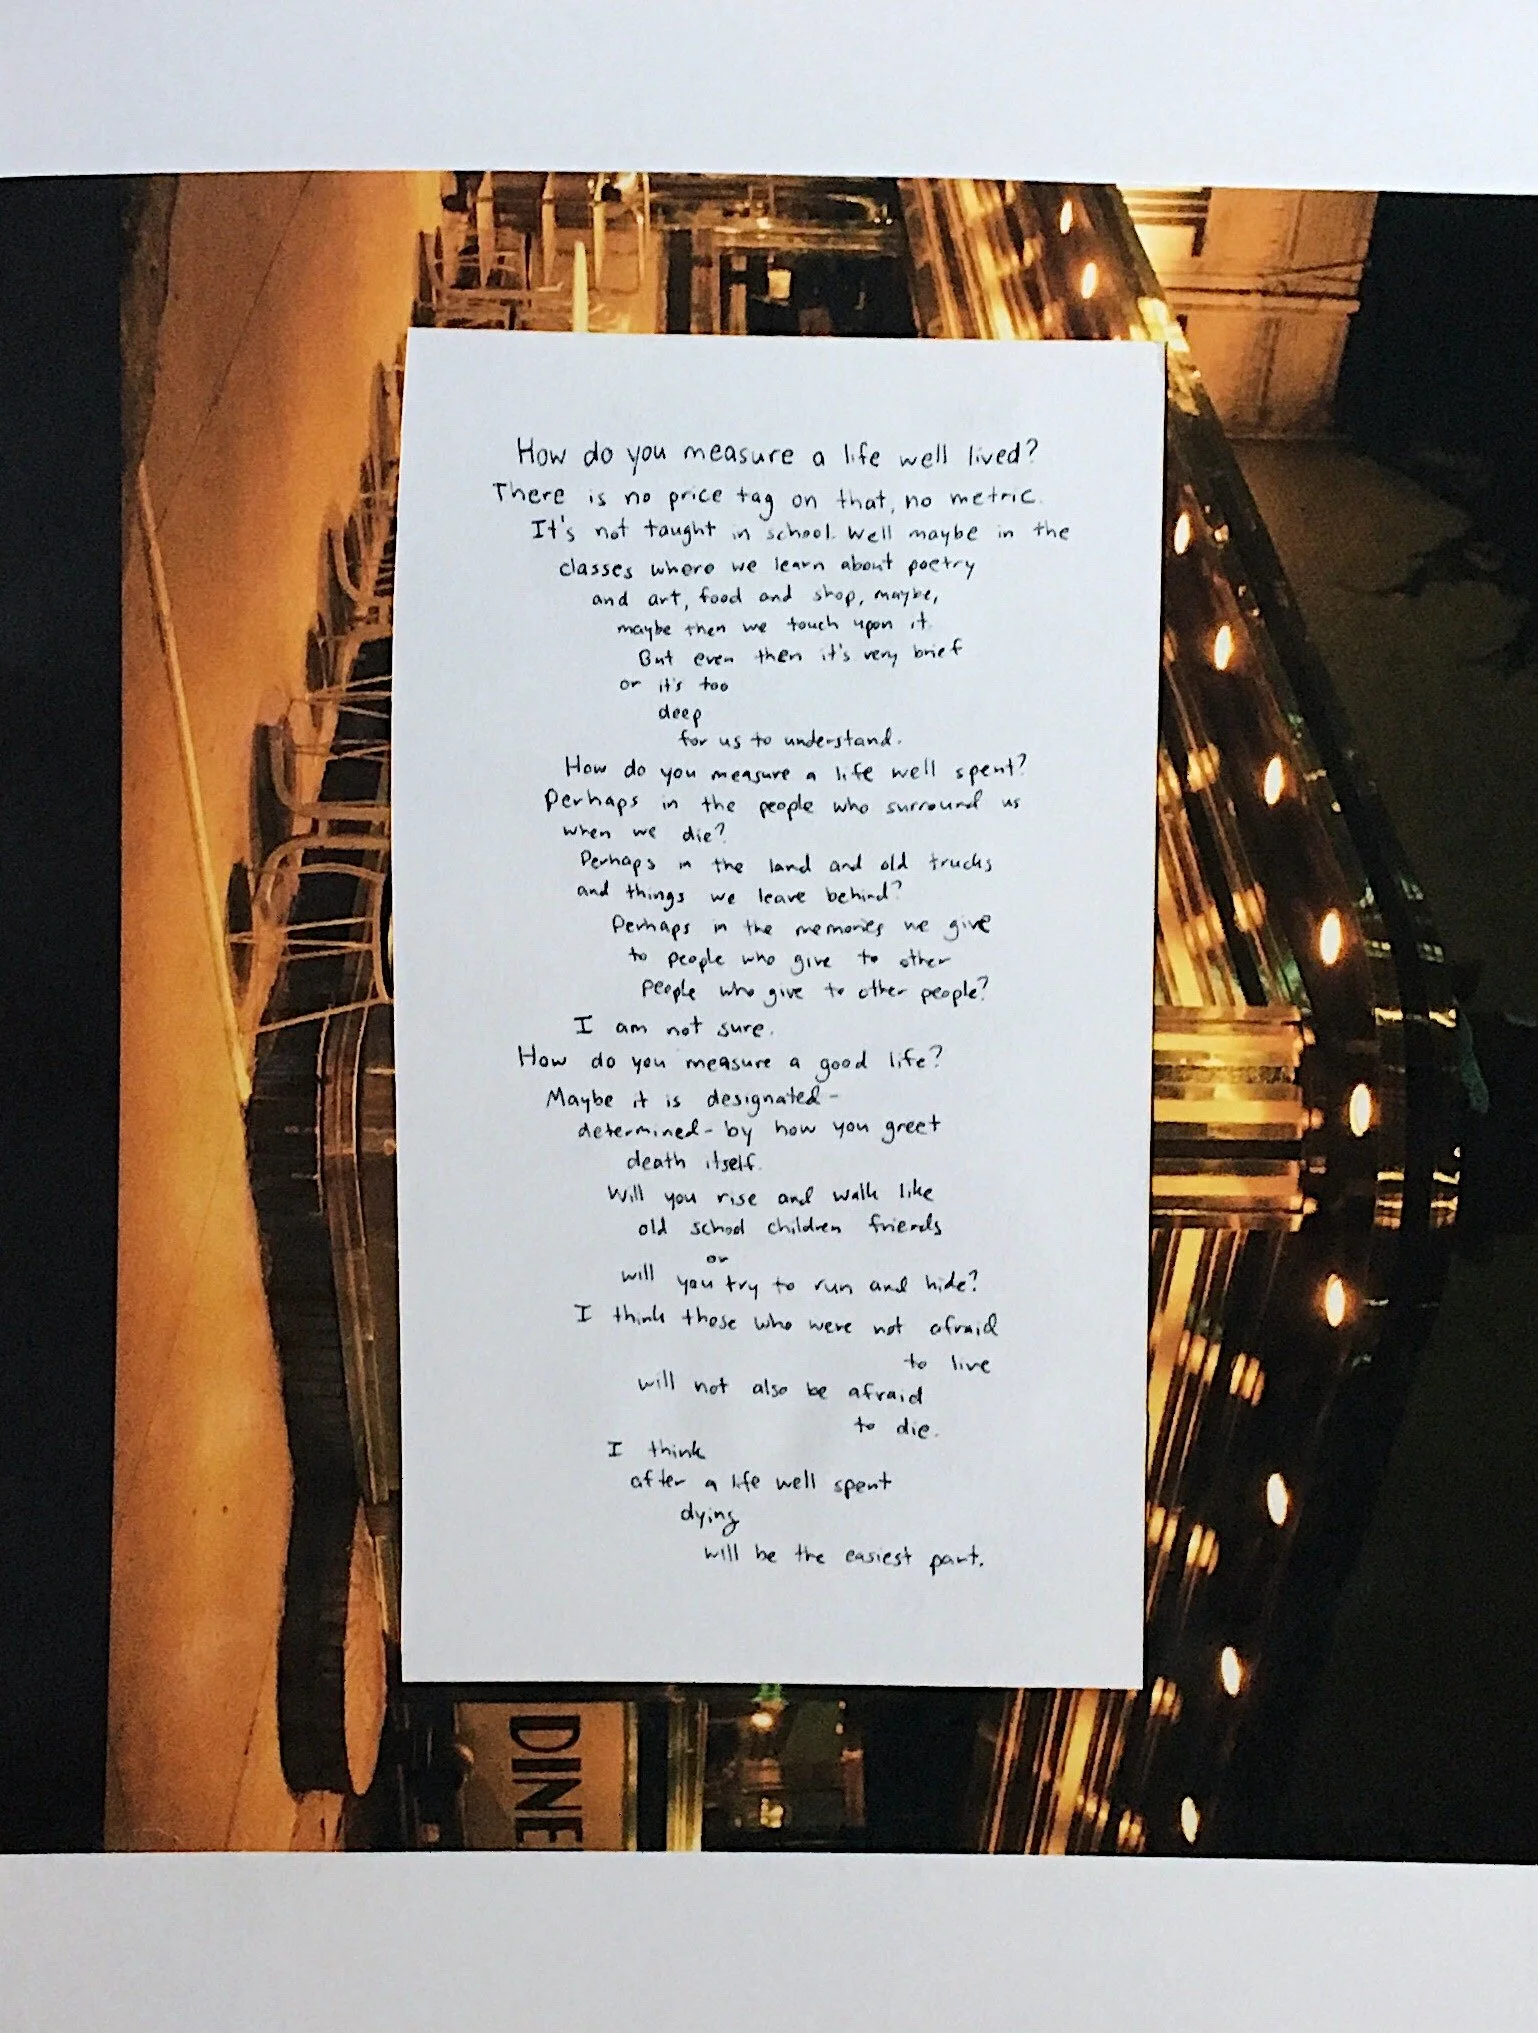 How do you measure a life well lived?
There is no price tag on that, no metric.
It's not taught in school. Well maybe in the
classes where we learn about poetry
and art, food and shop, maybe,
maybe then we touch upon it.
But even then it's very brief
or it's too
deep
for us to understand.
How do you measure a life well spent?
Perhaps in the people who surround us
when we die?
Perhaps in the land and old trucks
and things we leave behind?
Perhaps in the memories we give
to people who give to other
people who give to other people?
I am not sure.
How do you measure a good life?
Maybe it is designated-
determined- by how you greet
death itself.
Will you rise and walk like
old school children friends
or
will you try to run and hide?
I think those who were not afraid
to live
will not also be afraid
to die.
I think
after a life well spent
dying
will be the easiest part.
DINE